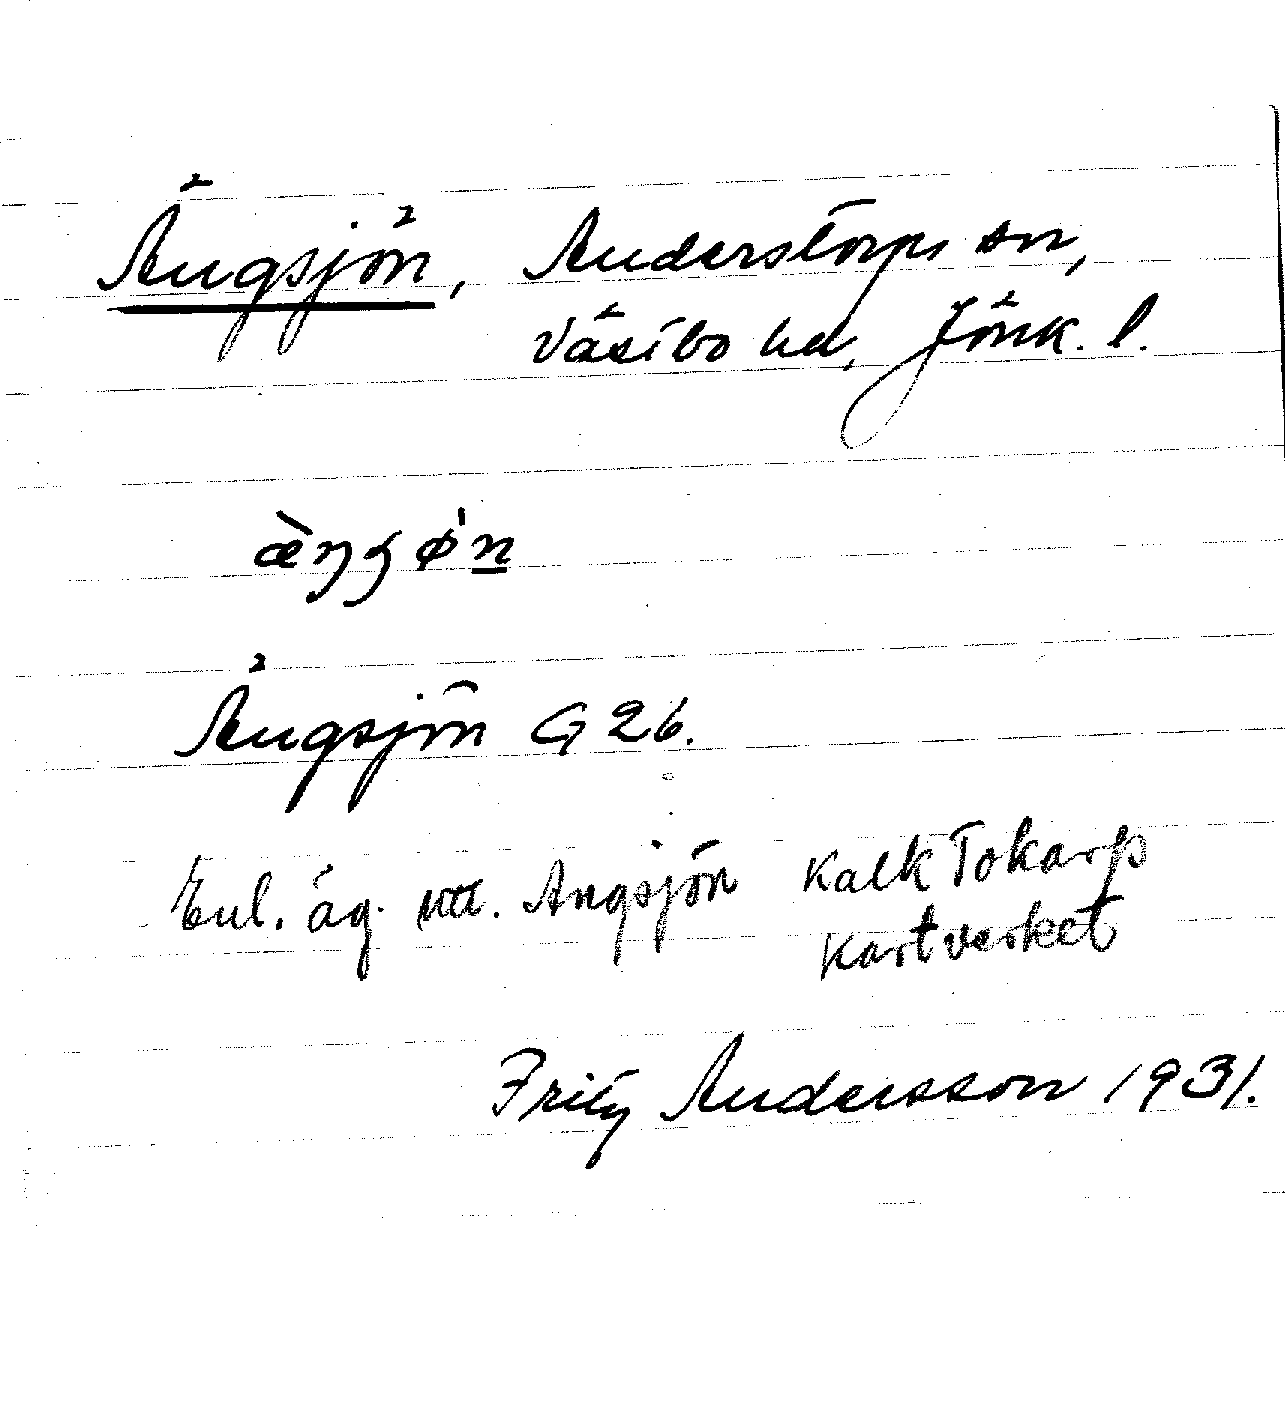 Ängsjön, Anderstorps sn,
Västbo hd, Jönk. l.
æ̀ŋʂø'n
Ängsjön G 26.
Enl. äg. Angsjön Kalk Tokarp
Kartverket
Fritz Andersson 1931.